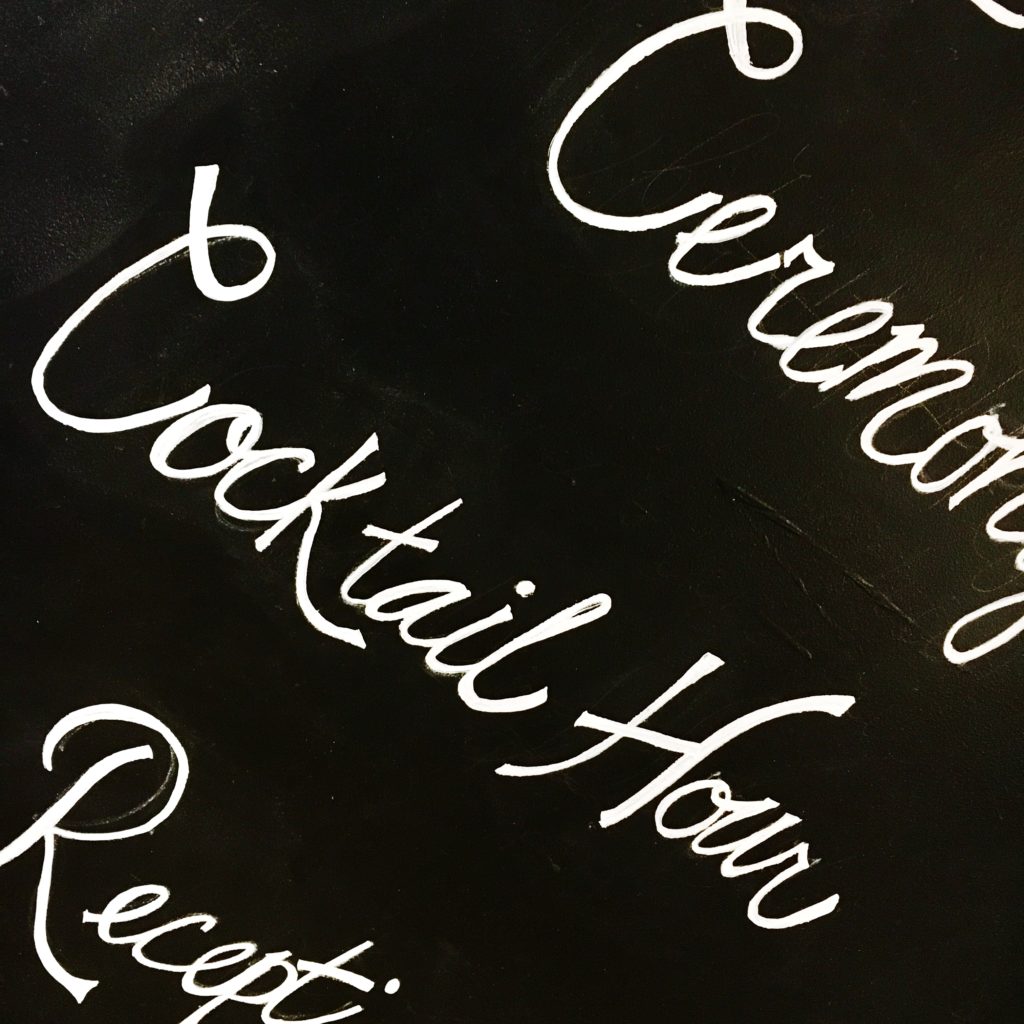 Ceremony
Cocktail Hour
Recepti